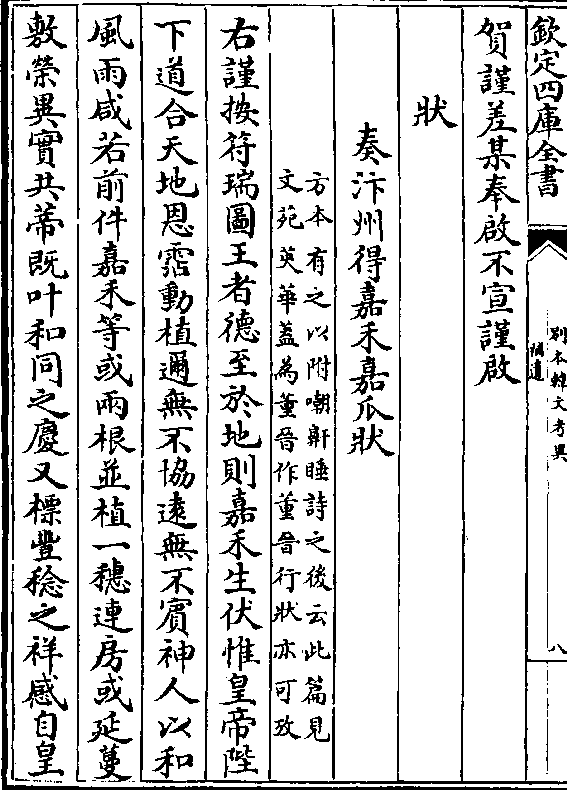 欽定四庫全書
別本韓文考異
補遺
八
賀謹差某奉啟不宣謹啟
狀
奏汴州得嘉禾嘉瓜狀
方本有之以附嘲鼾睡詩之後云此篇見
文苑英華盖為董晉作董晉行狀亦可攷
右謹按符瑞圖王者德至於地則嘉禾生伏惟皇帝陛
下道合天地恩霑動植邇無不協遠無不賓神人以和
風雨咸若前件嘉禾等或兩根並植一穗連房或延蔓
敷榮異實共蒂既叶和同之慶又標豐稔之祥感自皇